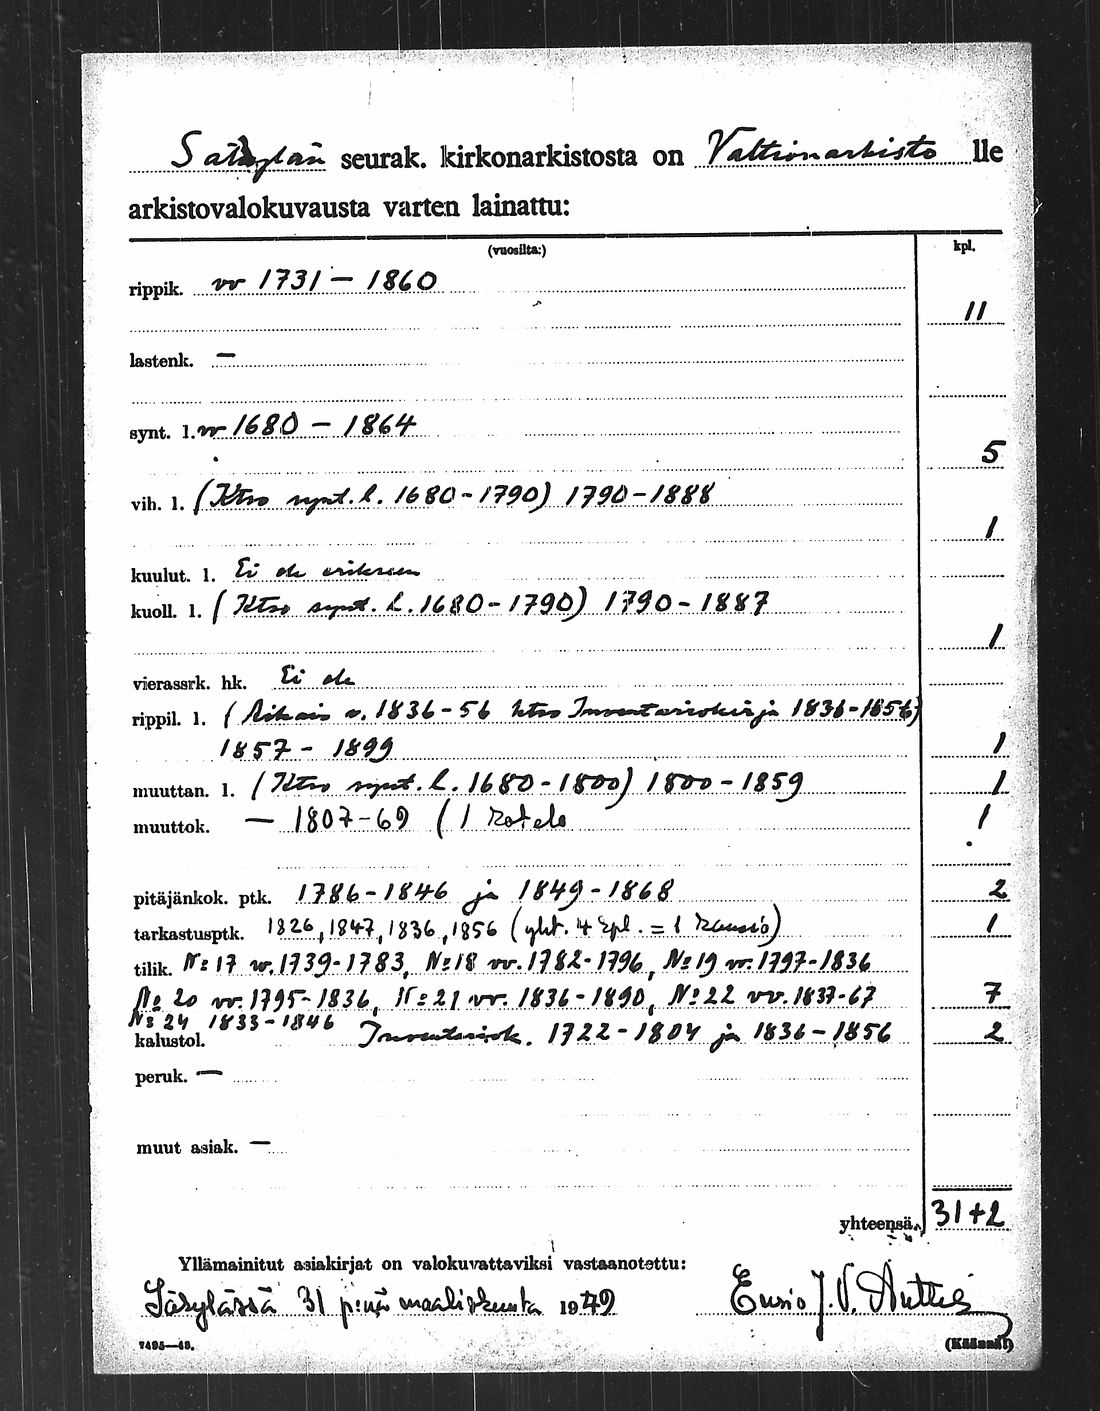 Säkylän seurak. kirkonarkistosta on Valtionarkisto lle
arkistovalokuvausta varten lainattu:
(vuosilta:) kpl.
rippik. vv 1731 – 1860
11
lastenk. —
synt. l. vv 1680 – 1864
5
vih. l. (Ktso synt. l. 1680-1790) 1790-1888
1
kuulut. l. Ei ole erikseen
kuoll. l. (Ktso synt. l. 1680-1790) 1790-1887
1
vierassrk. hk. Ei ole
rippil. l. ( v. 1836-56 ktso Inventariokirja 1836-1856)
1857 - 1899 1
muuttan. l. (Ktso synt. l. 1680-1800) 1800-1859 1
muuttok. — 1807-69 (1 kotelo 1
pitäjänkok. ptk. 1786-1846 ja 1849-1868 2
tarkastusptk. 1826, 1847, 1836, 1856 (yht. 4 kpl. = 1 kansio) 1
tilik. No 17 vv. 1739-1783, No 18 vv. 1782-1796, No 19 vv. 1797-1836
No 20 vv. 1795-1836, No 21 vv. 1836-1890, No 22 vv. 1837-67 7
No 24 1833-1846
kalustol. Inventariok. 1722-1804 ja 1836-1856 2
peruk. —
muut asiak. —
yhteensä 31+2
Yllämainitut asiakirjat on valokuvattaviksi vastaanotettu:
Säkylässä 31 p:nä maaliskuuta 1949 Ensio J. V. Anttila
7495—48. (Käännä!)